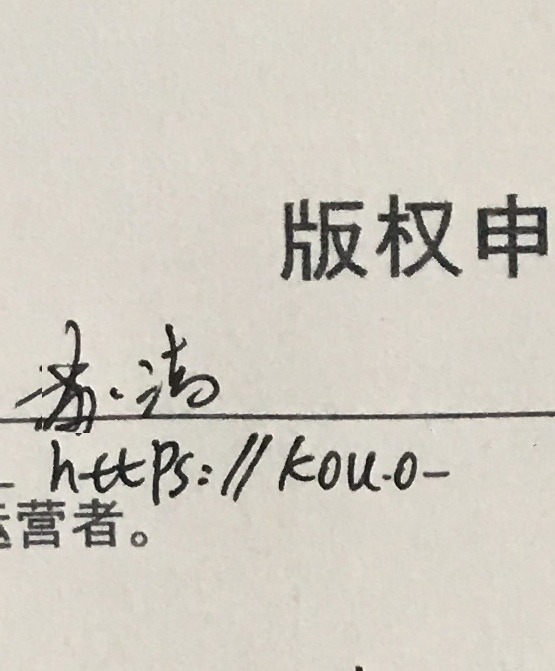 版权申
https://kou.o-
运营者。